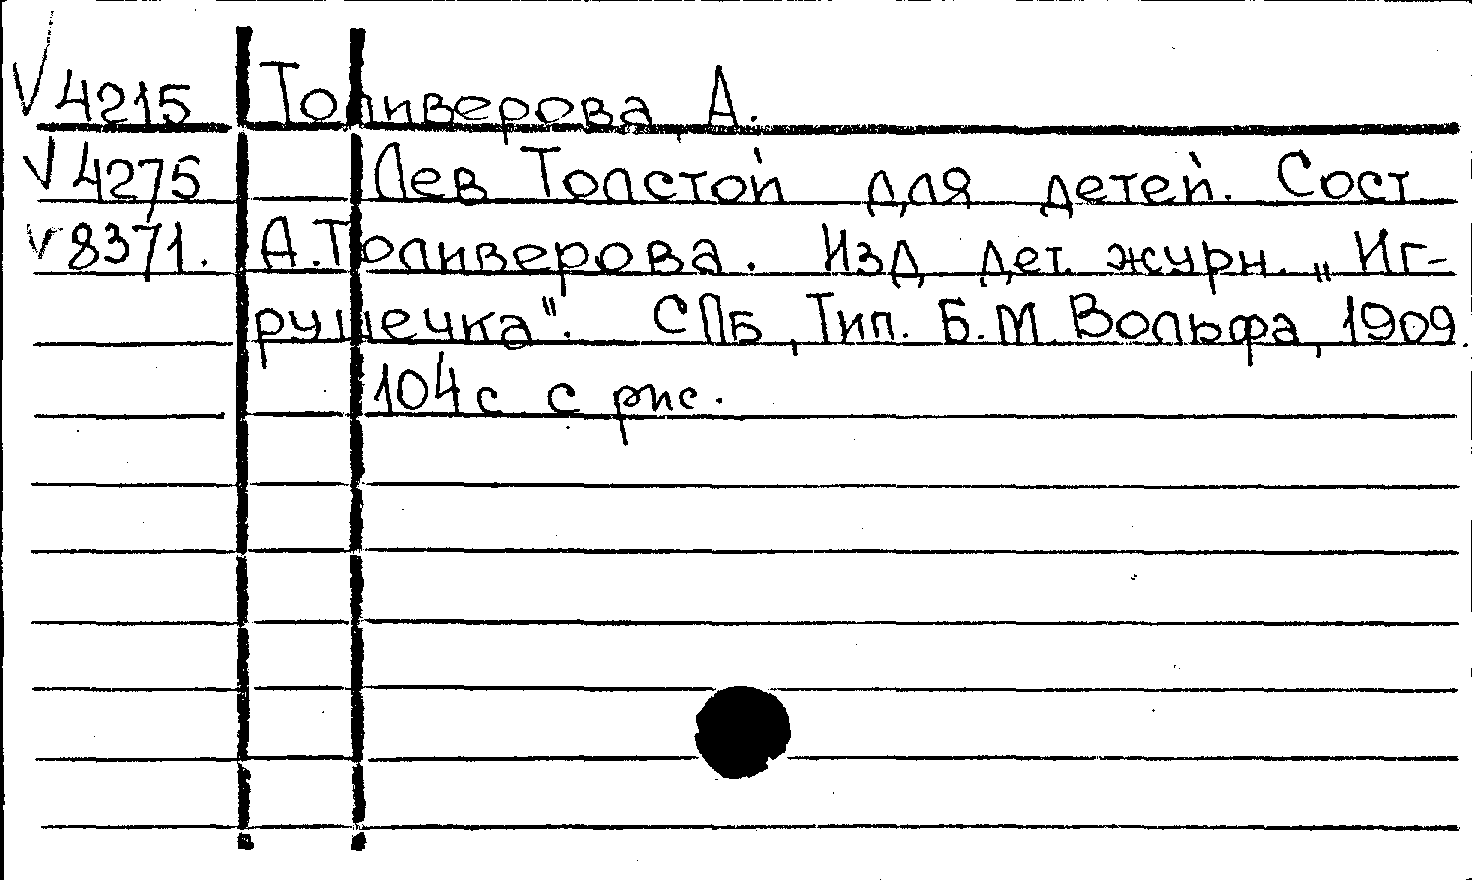 V 4215 Толиверова А.
V 4275 Лев Толстой для детей. Сост.
V 8371. А.Толиверова. Изд дет. журн. „Иг-
рушечка". СПБ, Тип. Б.М. Вольфа, 1909.
104 с с рис.